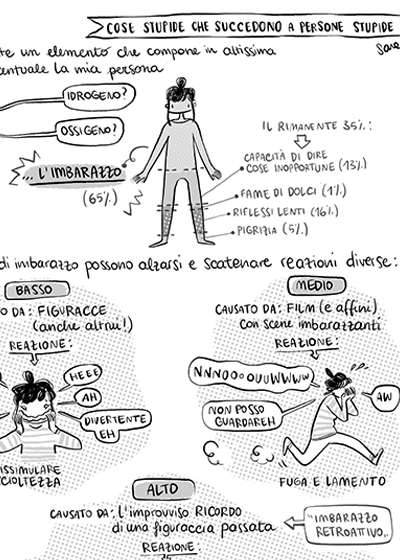 COSE STUPIDE CHE SUCCEDONO A PERSONE STUPIDE
te un elemento che compone in altissima
entuale la mia persona
IDROGENO?
OSSIGENO?
... L'IMBARAZZO
(65%)
IL RIMANENTE 35%:
CAPACITÀ DI DIRE
COSE INOPPORTUNE (13%)
FAME DI DOLCI (1%)
RIFLESSI LENTI (16%)
PIGRIZIA (5%)
di imbarazzo possono alzarsi e scatenare reazioni diverse:
BASSO
O DA: FIGURACCE
(anche altrui!)
REAZIONE:
HEEE
AH
DIVERTENTE
EH
ISSIMULARE
CIOLTEZZA
MEDIO
CAUSATO DA: FILM (e affini)
con scene imbarazzanti
REAZIONE:
NNNOOOOUUWWWW
NON POSSO
GUARDAREH
AW
FUGA E LAMENTO
ALTO
CAUSATO DA: l'improvviso RICORDO
di una figuraccia passata
REAZIONE:
"IMBARAZZO
RETROATTIVO"